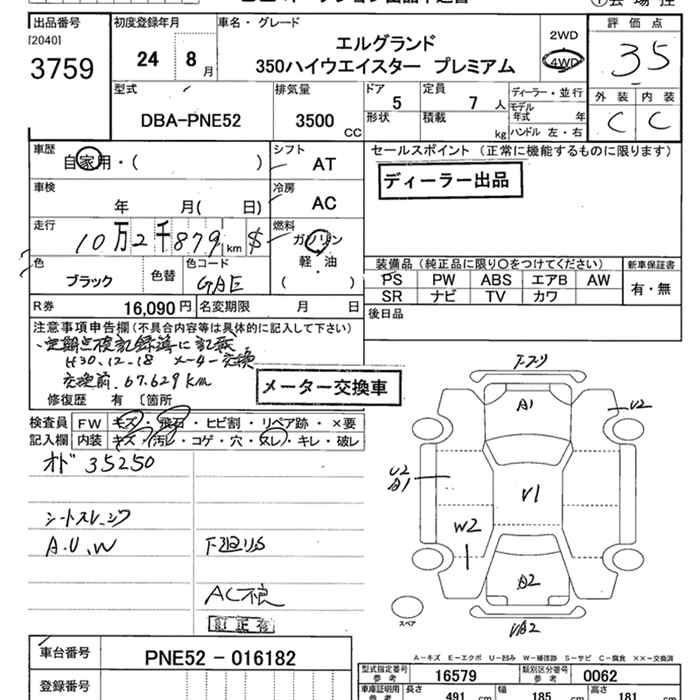 出品番号 初度登録年月 車名・グレード 評価点
[2040]
3759
24 8月
エルグランド
350ハイウエイスター プレミアム
2WD
4WD
35
型式 排気量 ドア 定員 ディーラー・並行 外装 内装
DBA-PNE52 3500 CC 5 7 人
モデル年式 年
形状 積載 kg ハンドル 左・右
C C
車歴 自家用・( ) シフト AT
セールスポイント (正常に機能するものに限ります)
ディーラー出品
車検 年 月( 日) 冷房 AC
走行 10万2千879km $ 燃料 ガソリン
軽・油
( )
色 ブラック 色替 色コード GAE
装備品(純正品に限り○をつけてください) 新車保証書
PS PW ABS エアB AW 有・無
SR ナビ TV カワ
R券 16,090円 名変期限 月 日
後日品
注意事項申告欄(不具合内容等は具体的に記入して下さい)
定期点検記録簿に記載
H30.12.18 メーター交換
交換前.67.629km
メーター交換車
修復歴 有 〔箇所
検査員 FW キズ・飛石・ヒビ割・リペア跡・×要
記入欄 内装 キズ・汚レ・コゲ・穴・スレ・キレ・破レ
オド 35250
シートスレ
A.U.W 下廻りS
AC不良
訂正有
A1
U2
U2
A1
V1
W2
A2
UA2
スペア
A-キズ E-エクボ U-凹み W-補修跡 S-サビ C-腐食 XX-交換済
車台番号 PNE52-016182
登録番号
型式指定番号 参考 16579 類別区分番号 参考 0062
車庫証明用 参考 長さ 491 cm 幅 185 cm 高さ 181 cm